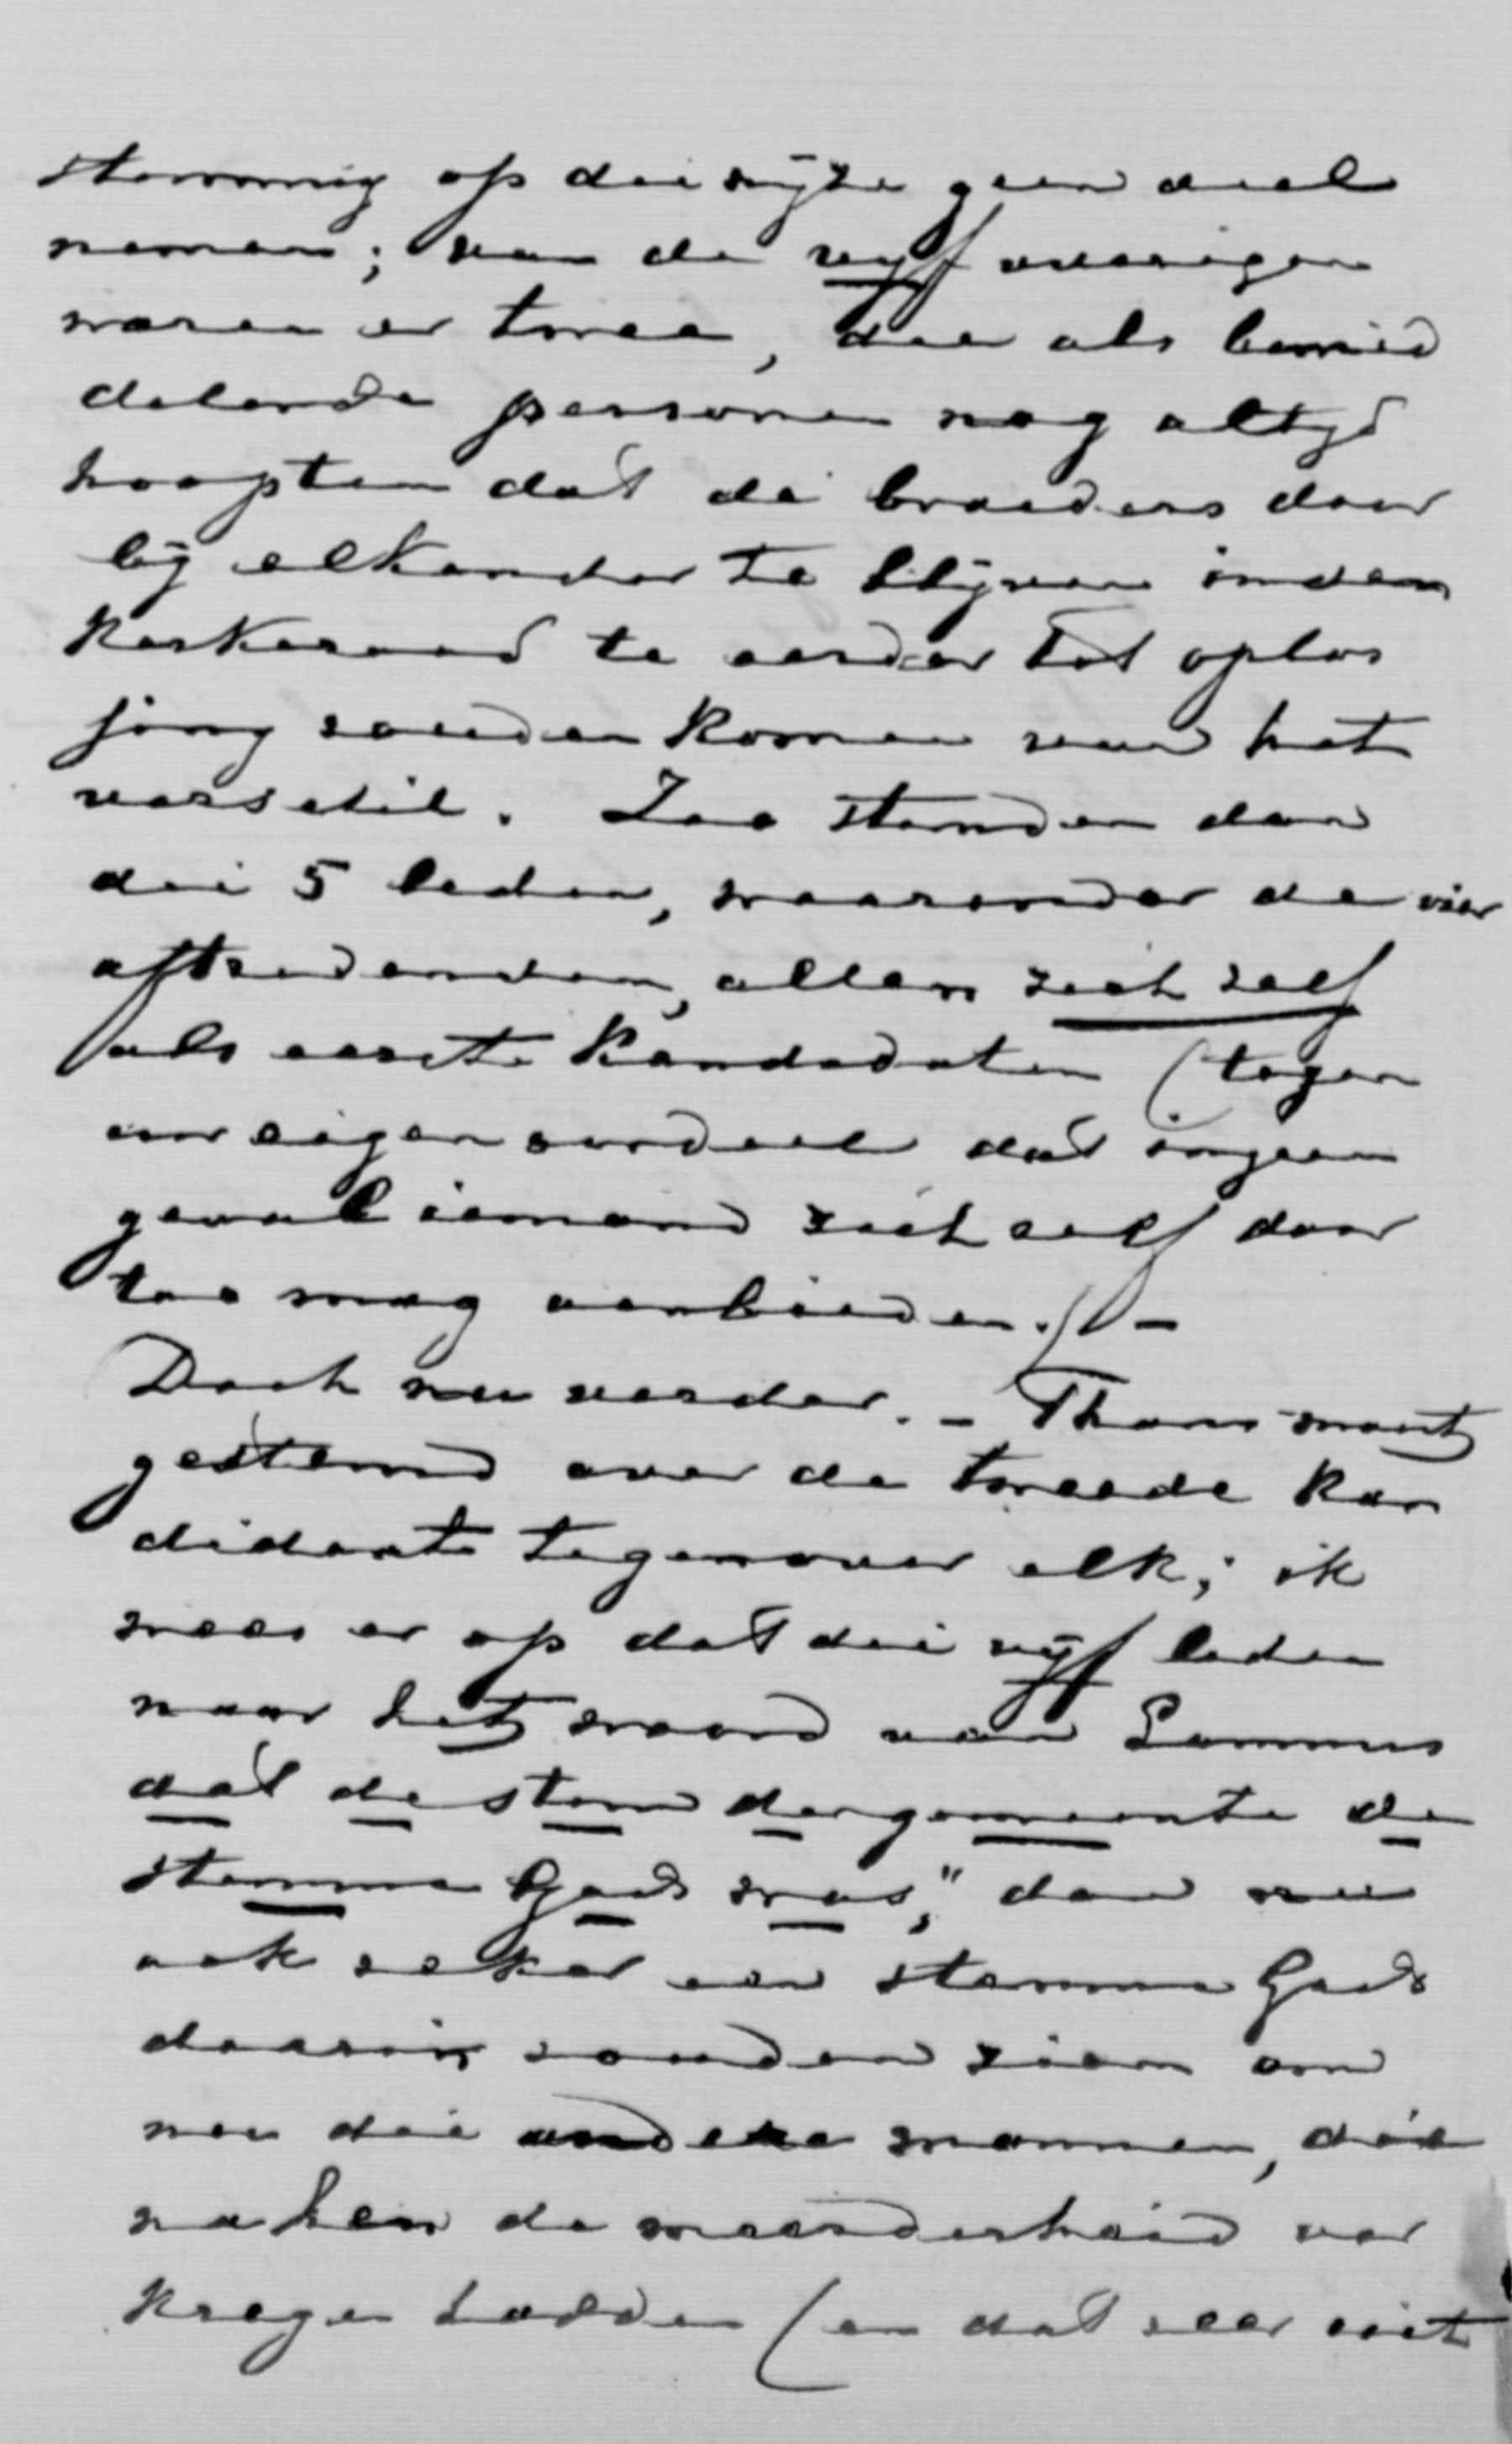 stemming op die wijze geen deel
nemen; van de vijf overigen
waren er twee, die als bemid
delende personen nog altijd
hoopten dat de broeders door
bij elkander te blijven in den
Kerkeraad te eerder tot oplos
sing souden Komen van het
verschil. Zoo stonden dan
die 5 leden, waaronder de vier
aftredenden, allen zich zelf
als eerste Kandidaten (tegen
ons eigen oordeel dat in geen
geval iemand zich self daar
toe mag aanbieden.) -
Doch nu verder. - Thans moest
gestemd over de tweede Kan
didaat tegenover elk; ik
wees er op dat die vijf leden
naar het woord van Lammers
dat de stem der gemeente de
stemme Gods was," dan nu
ook seker een stemme Gods
daarin souden zien om
nu die andere mannen, die
na hen de meerderheid ver
kregen hadden (en dat seer wist